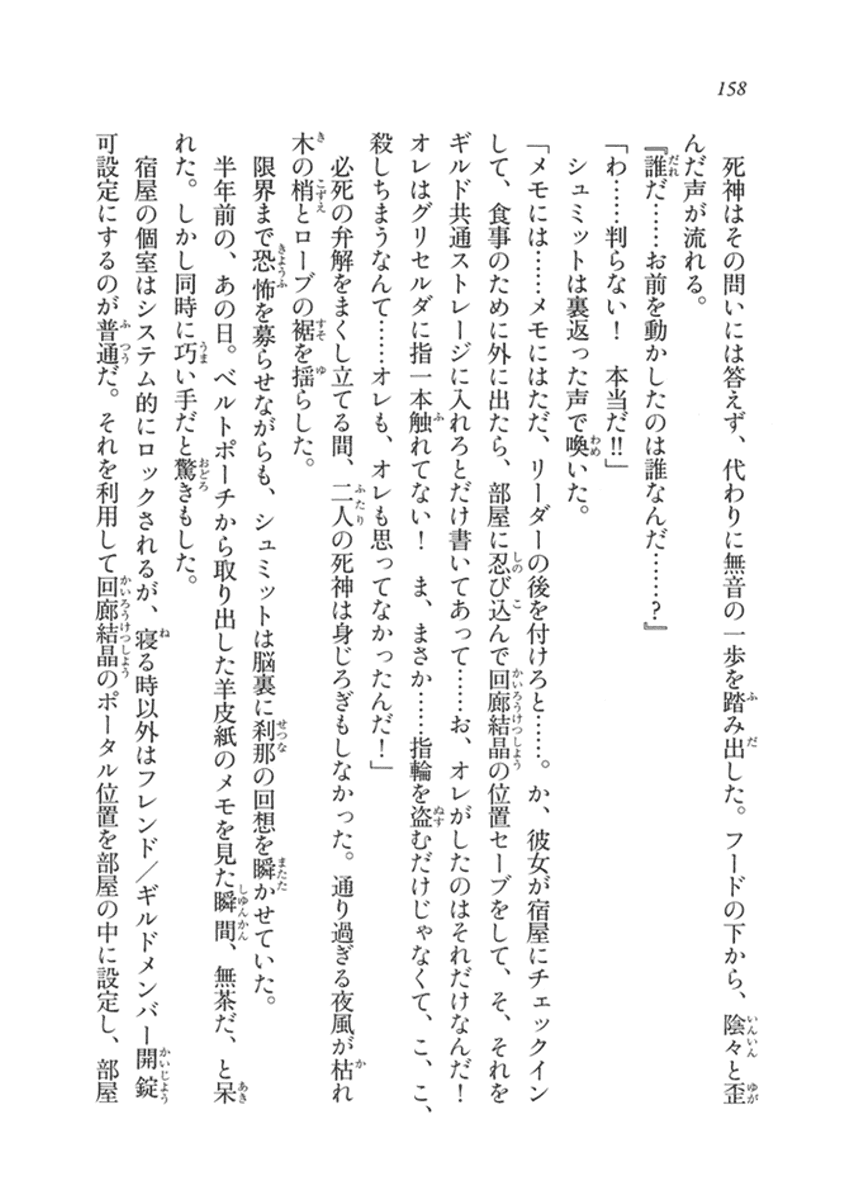 158
死神はその問いには答えず、代わりに無音の一歩を踏み出した。フードの下から、陰々と歪
んだ声が流れる。
『誰だ……お前を動かしたのは誰なんだ……?』
「わ……判らない！　本当だ!!」
シュミットは裏返った声で喚いた。
「メモには……メモにはただ、リーダーの後を付けろと……。か、彼女が宿屋にチェックイン
して、食事のために外に出たら、部屋に忍び込んで回廊結晶の位置セーブをして、そ、それを
ギルド共通ストレージに入れろとだけ書いてあって……お、オレがしたのはそれだけなんだ！
オレはグリセルダに指一本触れてない！　ま、まさか……指輪を盗むだけじゃなくて、こ、こ、
殺しちまうなんて……オレも、オレも思ってなかったんだ！」
必死の弁解をまくし立てる間、二人の死神は身じろぎもしなかった。通り過ぎる夜風が枯れ
木の梢とローブの裾を揺らした。
限界まで恐怖を募らせながらも、シュミットは脳裏に刹那の回想を瞬かせていた。
半年前の、あの日。ベルトポーチから取り出した羊皮紙のメモを見た瞬間、無茶だ、と呆
れた。しかし同時に巧い手だと驚きもした。
宿屋の個室はシステム的にロックされるが、寝る時以外はフレンド／ギルドメンバー開錠
可設定にするのが普通だ。それを利用して回廊結晶のポータル位置を部屋の中に設定し、部屋